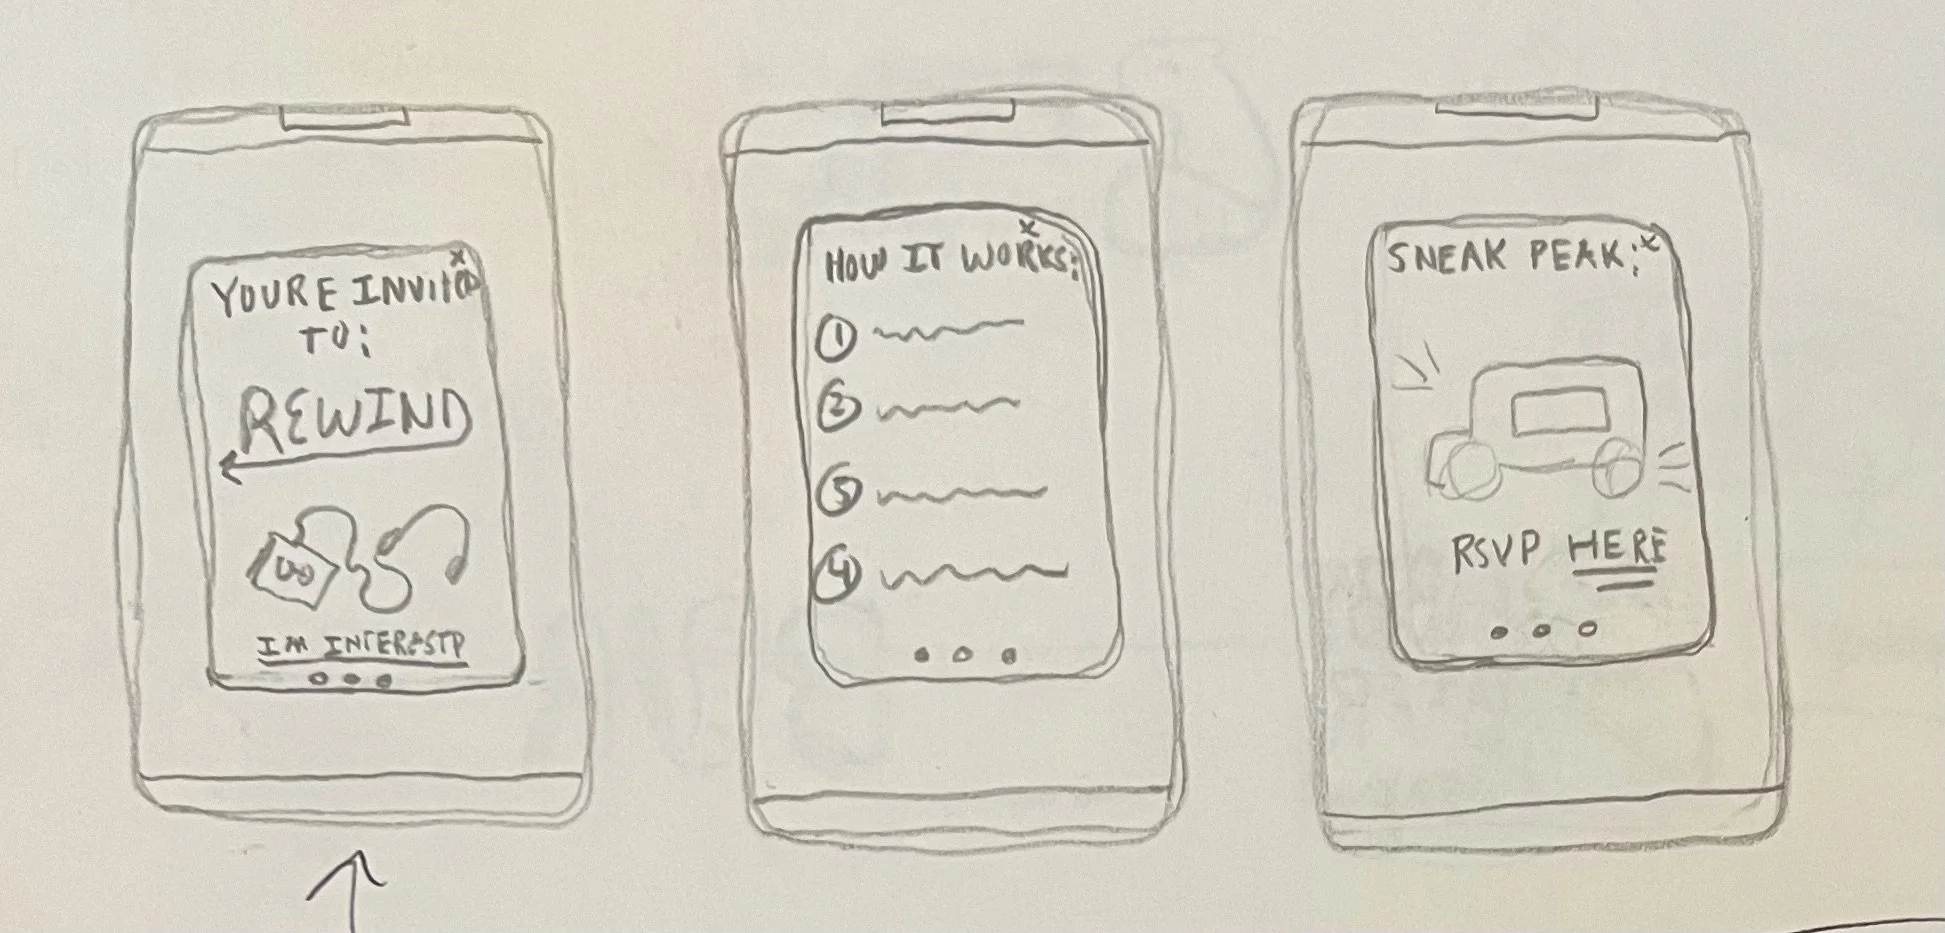 YOURE INVITED
TO:
REWIND
IM INTERESTD
X
HOW IT WORKS:
1
2
3
4
X
SNEAK PEAK:
X
RSVP HERE